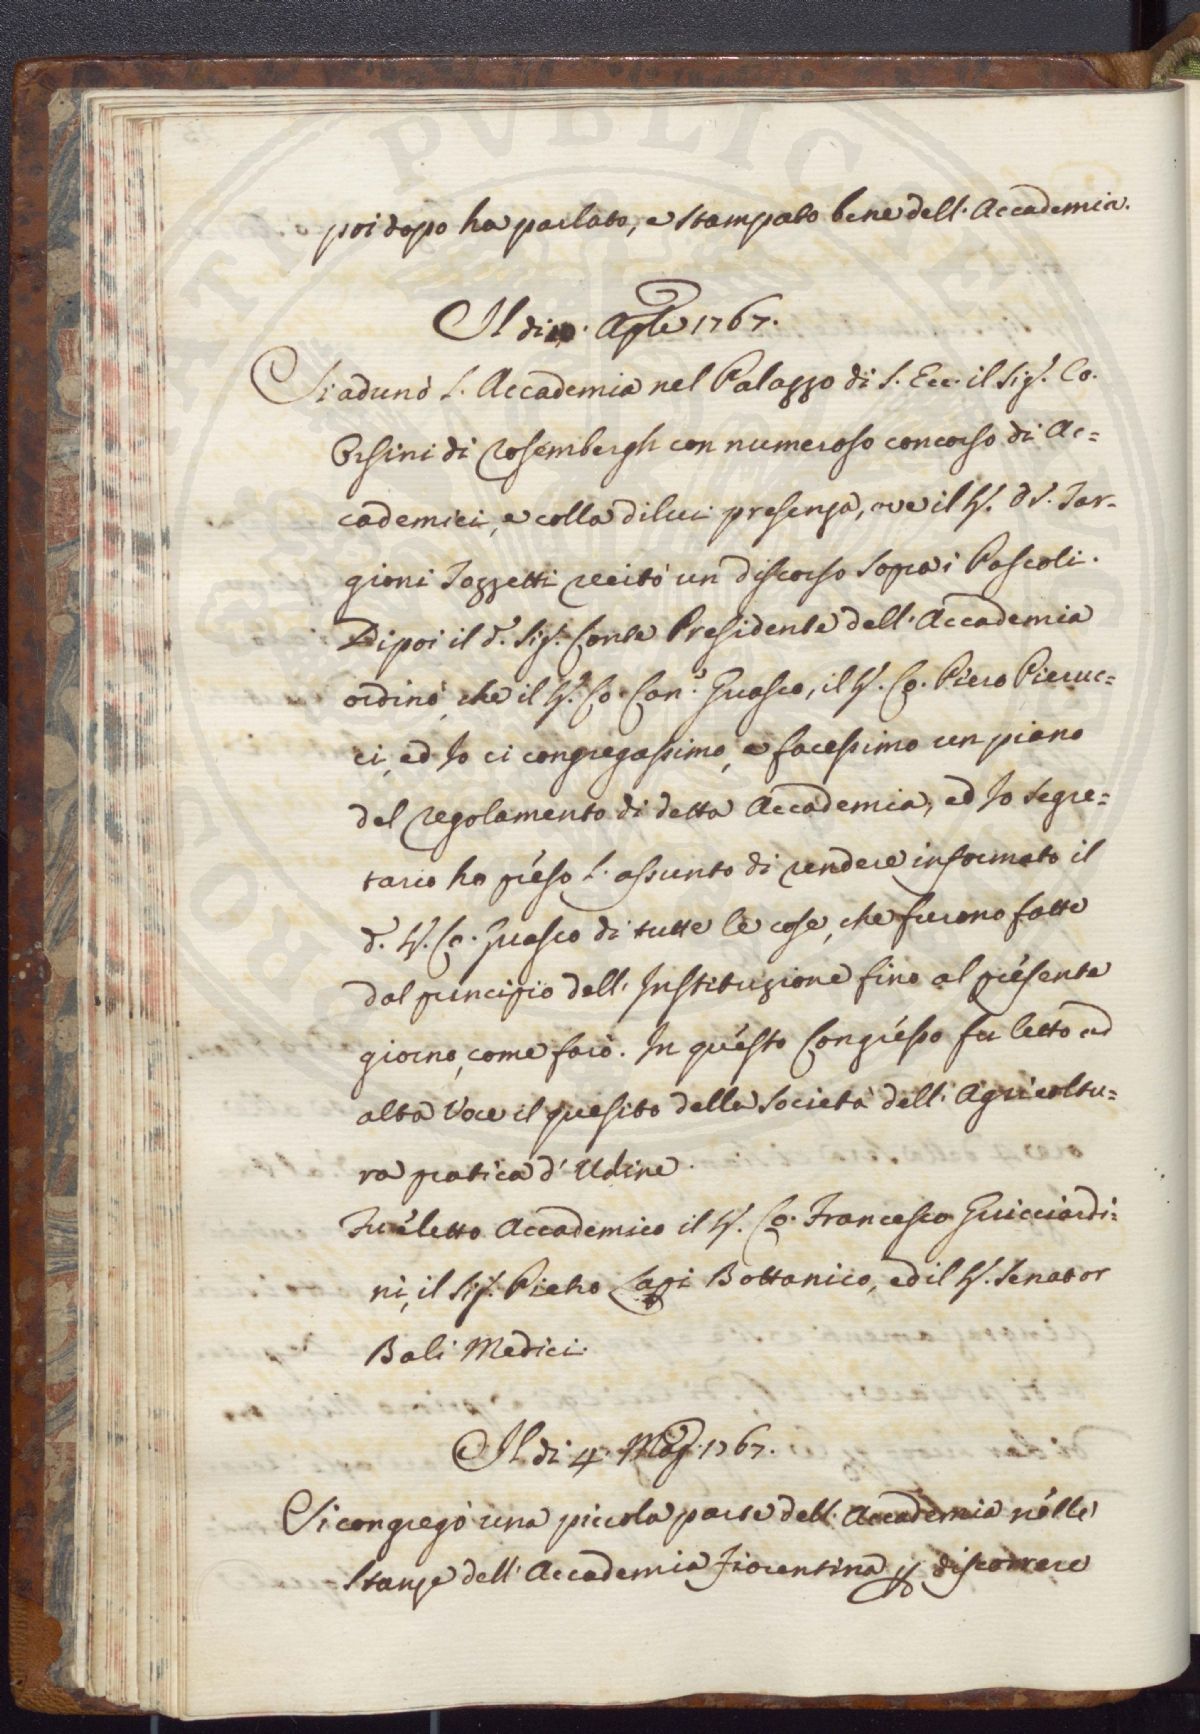 poi dopo ha parlato, e stampato bene dell'Accademia.
Il di Aple 1767.
Si adunò l'Accademia nel Palazzo di S. Ecc. il Sig.r Co.
Orsini di Rosembergh con numeroso concorso di Ac=
cademici, e colla di lui presenza, ove il S.r D.r Tar-
gioni Tozzetti recitò un discorso sopra i Pascoli.
Dipoi il d.o Sig.r Conte Presidente dell'Accademia
ordinò, che il S.r Co. Can.o Guasco, il S.r Co. Piero Pieruc=
ci, ed Io ci congregassimo, e facessimo un piano
del regolamento di detta Accademia, ed Io Segre=
tario ho preso l'assunto di rendere informato il
d.o S.r Co. Guasco di tutte le cose, che furono fatte
dal principio dell'Instituzione fino al presente
giorno, come farò. In questo Congresso fu letto ad
alta voce il quesito della Società dell'Agricoltu=
ra pratica d'Udine.
Fu eletto Accademico il S.r Co. Francesco Guicciardi=
ni, il Sig.r Pietro Bottanico, ed il S.r Senator
Balì Medici.
Il di 4. Mag. 1767.
Si congregò una piccola parte dell'Accademia nelle
Stanze dell'Accademia Fiorentina p discorrere
PVBLICAE